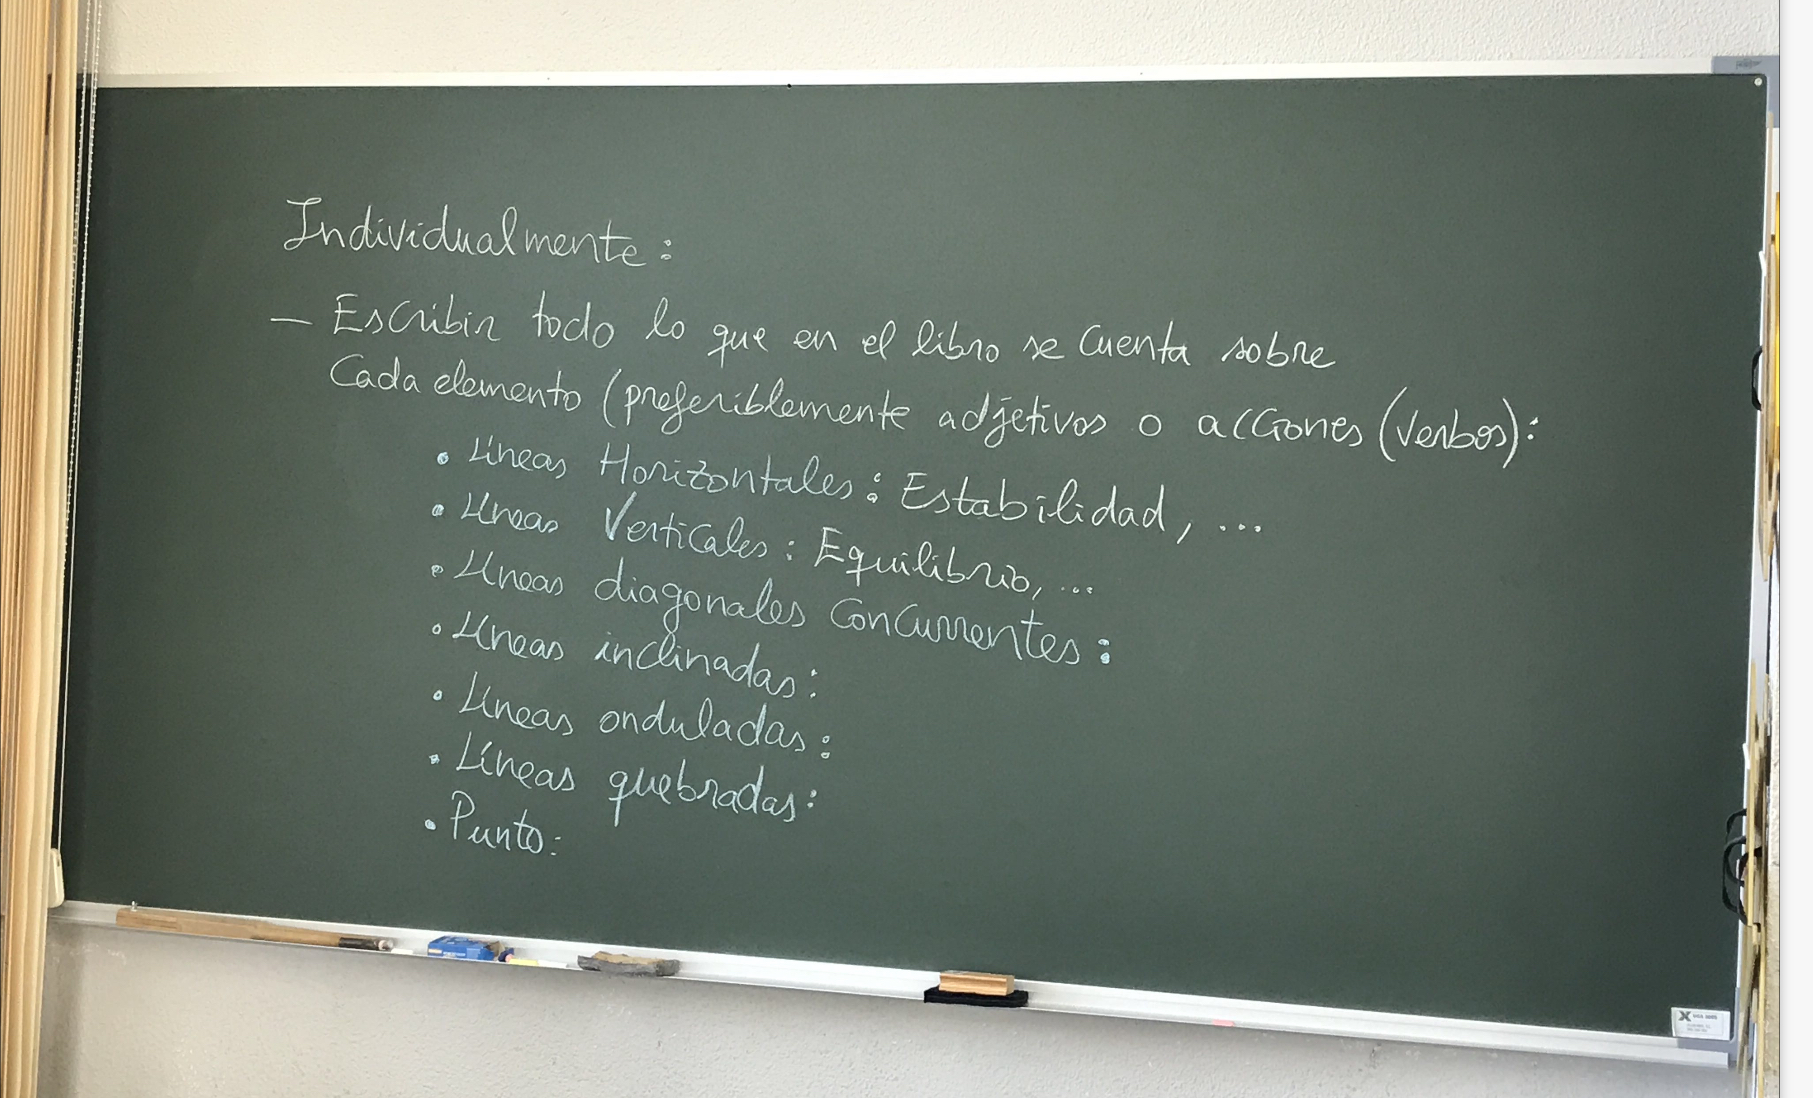 Individualmente:
— Escribir todo lo que en el libro se cuenta sobre
Cada elemento (preferiblemente adjetivos o acciones (verbos):
• Líneas Horizontales: Estabilidad, ...
• Líneas Verticales: Equilibrio, ...
• Líneas diagonales Concurrentes:
• Líneas inclinadas:
• Líneas onduladas:
• Líneas quebradas:
• Punto: